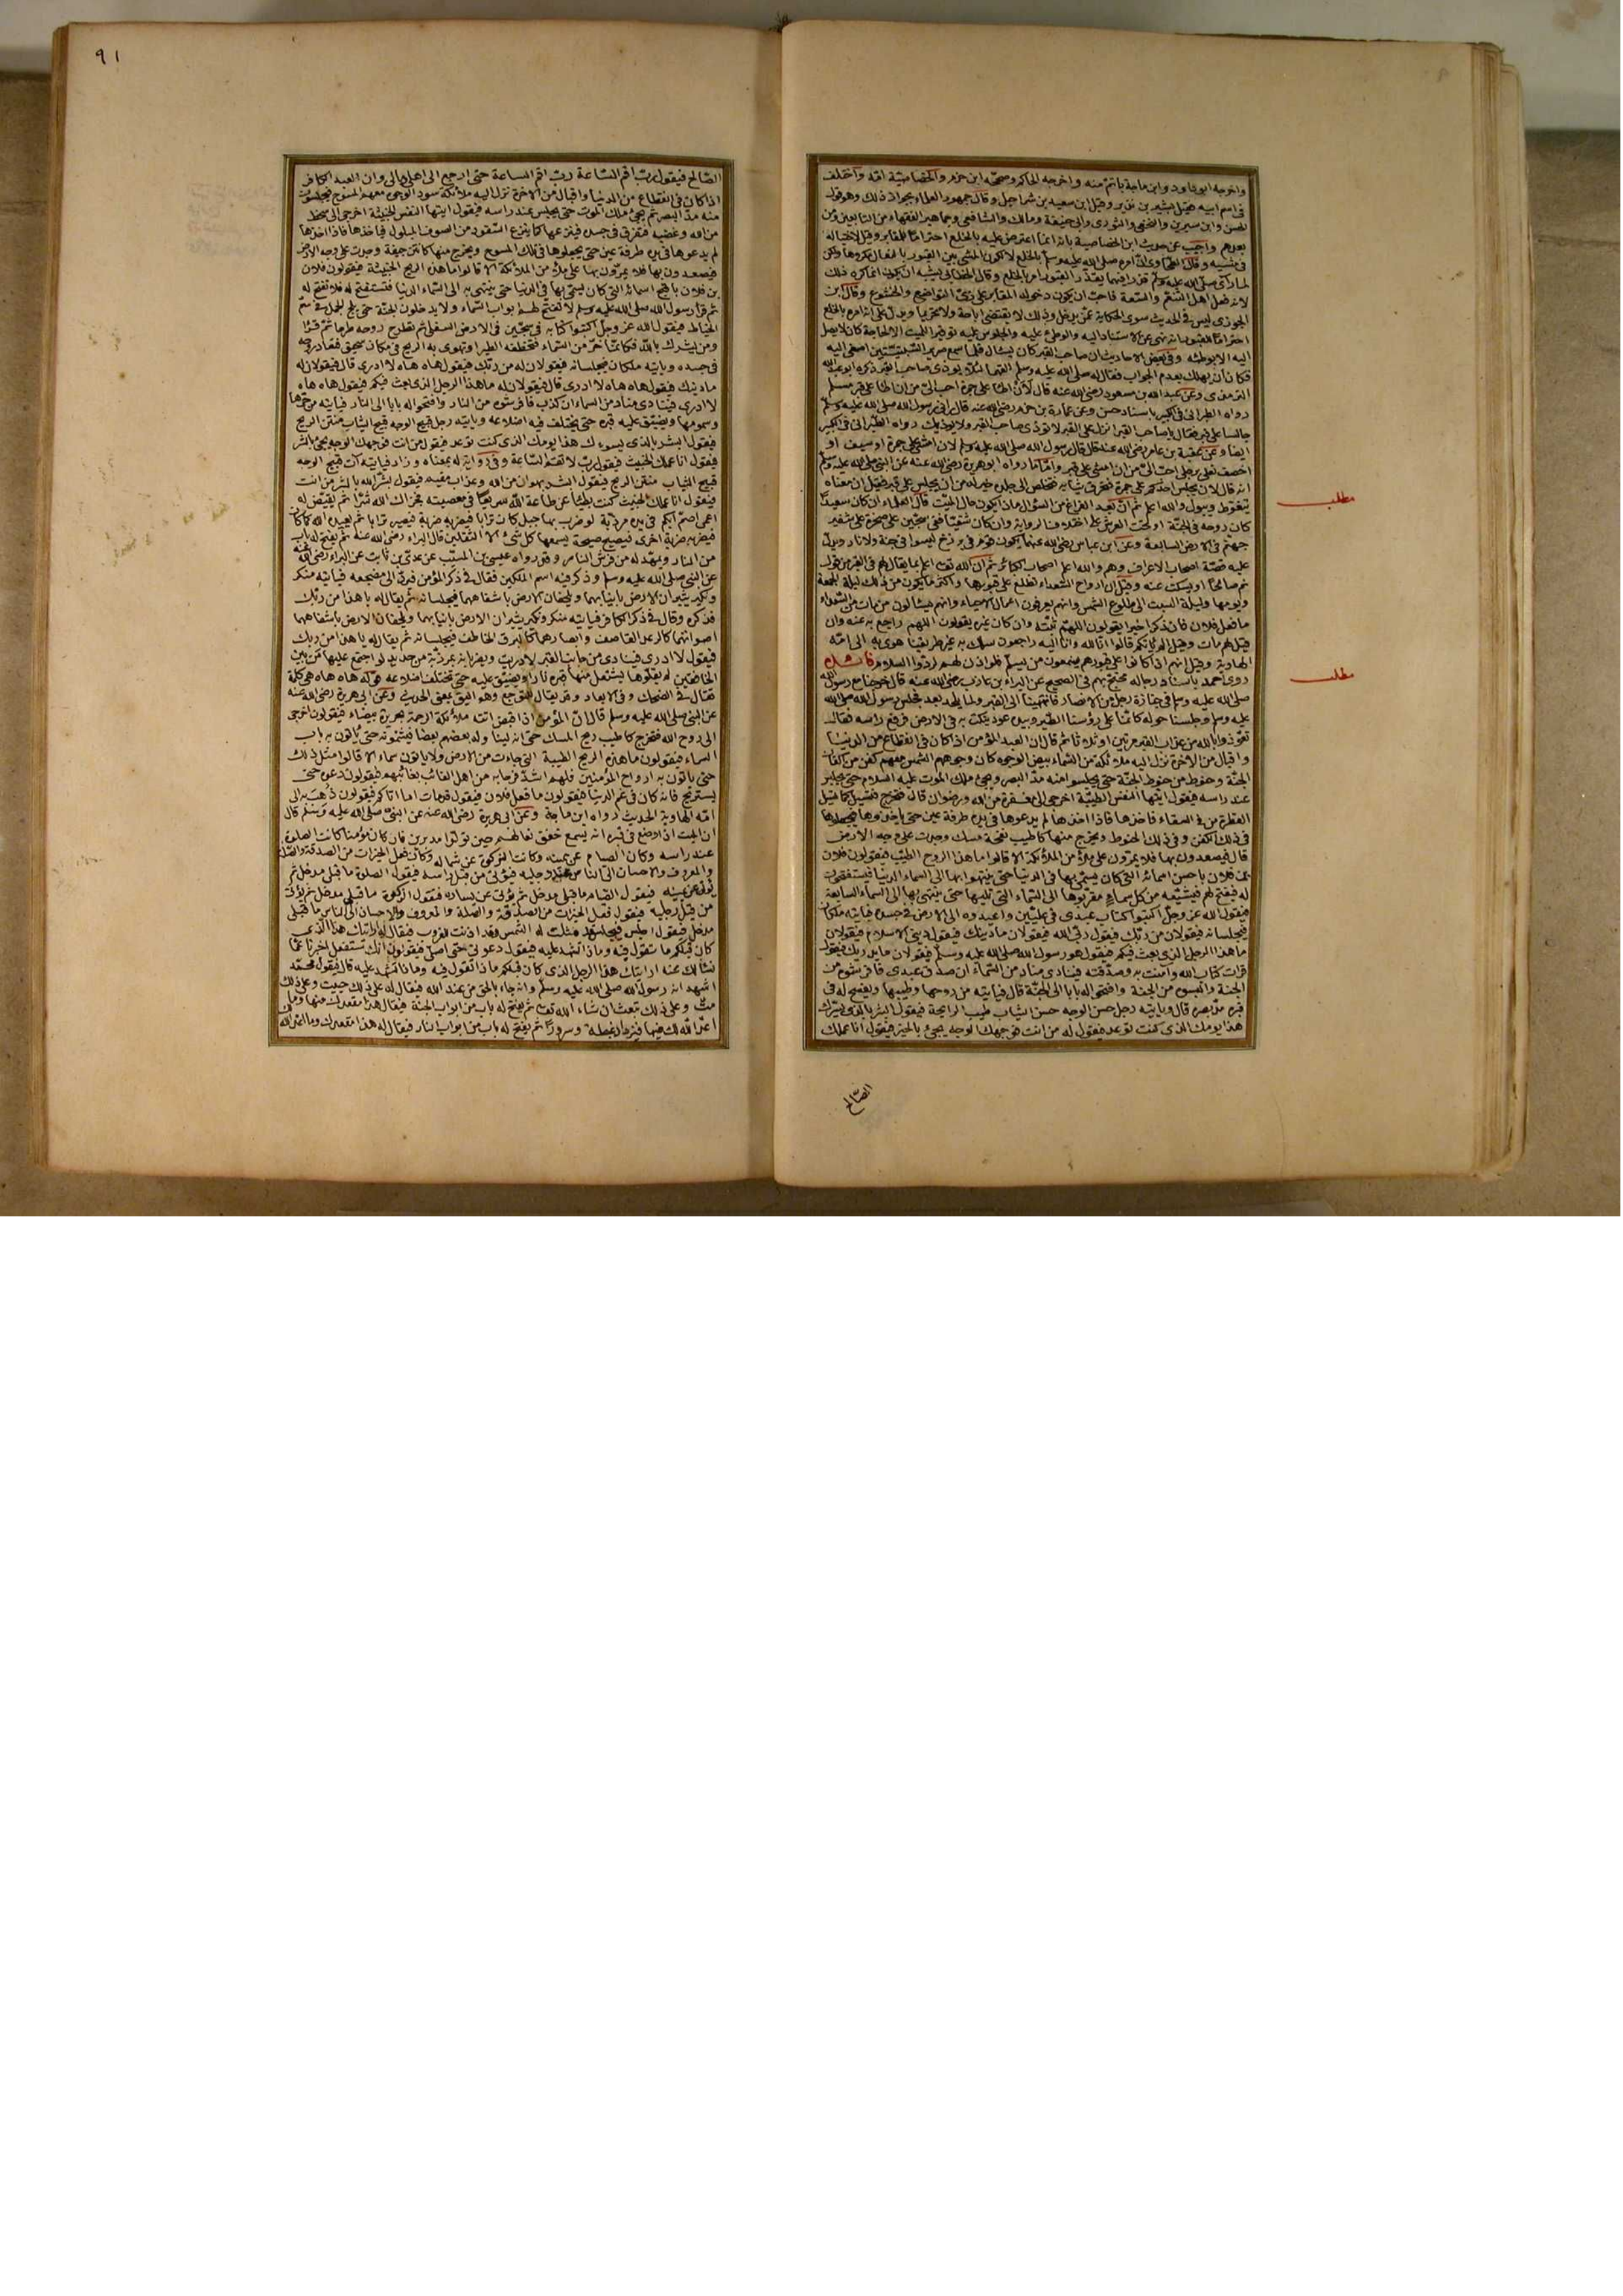 واخرجه ابو داود وابن ماجة باتم منه واخرجه الحاكم وصححه ابن حزم والخصاصية امه واختلف
في اسم ابيه فقيل بشير بن نذير وقيل ابن سعيد بن شراحيل وقال جمهور العلماء بجواز ذلك وهو قول
الحسن وابن سيرين والنخعي والثوري وابي حنيفة ومالك والشافعي وجماهير الفقهاء من التابعين ومن
بعدهم واجيب عن حديث ابن الخصاصية بانه انما اعترض عليه بالخلع احتراما للمقابر وقيل لاختياله
في مشيه وقال الطحاوي ان امره صلى الله عليه وسلم بالخلع لا لكون المشي بين القبور بالنعال مكروها ولكن
لما رأى صلى الله عليه وسلم قذرا فيهما يقذر القبور امر بالخلع وقال الخطابي يشبه ان يكون انما كره ذلك
لانه فعل اهل النعم والسعة فاحب ان يكون دخوله المقابر على زي التواضع والخشوع وقال ابن
الجوزي ليس في الحديث سوى الحكاية عمن يدخل وذلك لا يقتضي اباحة ولا تحريما ويدل على انه امره بالخلع
احتراما للقبور لانه نهى عن الاستناد اليه والوطئ عليه والجلوس عليه توقيرا للميت الا لحاجة كان لا يصل
اليه الا بوطئه وفي بعض الاحاديث ان صاحب القبر كان يسأل فلما سمع صرير السبتيتين اصغى اليه
فكاد ان يهلك بعدم الجواب فقال له صلى الله عليه وسلم القهما لئلا يؤذي صاحب القبر ذكره ابو عبد الله
الترمذي وعن عبد الله بن مسعود رضي الله عنه قال لأن اطأ على جمرة احب الي من ان اطأ على قبر مسلم
رواه الطبراني في الكبير باسناد حسن وعن عمارة بن حزم رضي الله عنه قال رآني رسول الله صلى الله عليه وسلم
جالسا على قبر فقال يا صاحب القبر انزل على القبر لا تؤذي صاحب القبر ولا يؤذيك رواه الطبراني في الكبير
ايضا وعن عقبة بن عامر رضي الله عنه قال قال رسول الله صلى الله عليه وسلم لان امشي على جمرة او سيف او
اخصف نعلي برجلي احب الي من ان امشي على قبر واما ما رواه ابو هريرة رضي الله عنه عن النبي صلى الله عليه وسلم
انه قال لان يجلس احدكم على جمرة فتحرق ثيابه فتخلص الى جلده خير له من ان يجلس على قبر فقيل ان معناه
يتغوط ويبول والله اعلم ثم ان بعد الفراغ من السؤال ماذا يكون حال الميت قال العلماء ان كان سعيدا
كان روحه في الجنة او تحت العرش على اختلاف الرواية وان كان شقيا ففي سجين على صخرة على شفير
جهنم في الارض السابعة وعن ابن عباس رضي الله عنهما يكون قوم في برزخ ليسوا في جنة ولا نار ويدل
عليه قصة اصحاب الاعراف وهم والله اعلم اصحاب الكبائر ثم ان الله تعالى اعلم بما يقال لهم في القبر من قول
نم صالحا او يسكت عنه وقيل ان ارواح السعداء تطلع على قبورها واكثر ما يكون من ذلك ليلة الجمعة
ويومها وليلة السبت الى طلوع الشمس وانهم يعرفون اعمال الاحياء وانهم يسألون من مات من السعداء
ما فعل فلان فان ذكر خيرا يقولون اللهم ثبته وان كان غيره يقولون اللهم راجع به عنه وان
قيل لهم مات وقيل الم يأتكم قالوا انا لله وانا اليه راجعون سلك به غير طريقنا هوى به الى امه
الهاوية وقيل انهم اذا كانوا على قبورهم يسمعون من يسلم فلو اذن لهم لردوا السلام
روى احمد باسناد رجاله محتج بهم في الصحيح عن البراء بن عازب رضي الله عنه قال خرجنا مع رسول الله
صلى الله عليه وسلم في جنازة رجل من الانصار فانتهينا الى القبر ولما يلحد بعد فجلس رسول الله صلى الله
عليه وسلم وجلسنا حوله كانما على رؤسنا الطير وبيده عود ينكت به في الارض فرفع راسه فقال
تعوذوا بالله من عذاب القبر مرتين او ثلاثا ثم قال ان العبد المؤمن اذا كان في انقطاع من الدنيا
واقبال من الاخرة نزل اليه ملائكة من السماء بيض الوجوه كان وجوههم الشمس معهم كفن من اكفان
الجنة وحنوط من حنوط الجنة حتى يجلسوا منه مد البصر ويجئ ملك الموت عليه السلام حتى يجلس
عند راسه فيقول ايتها النفس الطيبة اخرجي الى مغفرة من الله ورضوان قال فتخرج فتسيل كما تسيل
القطرة من في السقاء فاخذها فاذا اخذها لم يدعوها في يده طرفة عين حتى ياخذوها فيجعلوها
في ذلك الكفن وفي ذلك الحنوط ويخرج منها كاطيب نفحة مسك وجدت على وجه الارض
قال فيصعدون بها فلا يمرون على ملأ من الملائكة الا قالوا ما هذا الروح الطيب فيقولون فلان
بن فلان باحسن اسمائه التي كان يسمى بها في الدنيا حتى ينتهوا بها الى السماء الدنيا فيستفتحون
له فيفتح لهم فيشيعه من كل سماء مقربوها الى السماء التي تليها حتى ينتهي بها الى السماء السابعة
فيقول الله عز وجل اكتبوا كتاب عبدي في عليين واعيدوه الى الارض في جسده فيأتيه ملكان
فيجلسانه فيقولان من ربك فيقول ربي الله فيقولان ما دينك فيقول ديني الاسلام فيقولان
ما هذا الرجل الذي بعث فيكم فيقول هو رسول الله صلى الله عليه وسلم فيقولان ما يدريك فيقول
قرأت كتاب الله وامنت به وصدقته فينادي مناد من السماء ان صدق عبدي فافرشوه من
الجنة والبسوه من الجنة وافتحوا له بابا الى الجنة قال فيأتيه من روحها وطيبها ويفسح له في
قبره مد بصره قال ويأتيه رجل حسن الوجه حسن الثياب طيب الرائحة فيقول ابشر بالذي يسرك
هذا يومك الذي كنت توعد فيقول له من انت فوجهك الوجه يجئ بالخير فيقول انا عملك
الصالح
مطلب
مطلب
٩١
الصالح فيقول رب اقم الساعة رب اقم الساعة حتى ارجع الى اهلي ومالي وان العبد الكافر
اذا كان في انقطاع من الدنيا واقبال من الاخرة نزل اليه ملائكة سود الوجوه معهم المسوح فيجلسون
منه مد البصر ثم يجئ ملك الموت حتى يجلس عند راسه فيقول ايتها النفس الخبيثة اخرجي الى سخط
من الله وغضب فتفرق في جسده فينتزعها كما ينتزع السفود من الصوف المبلول فياخذها فاذا اخذها
لم يدعوها في يده طرفة عين حتى يجعلوها في تلك المسوح ويخرج منها كانتن جيفة وجدت على وجه الارض
فيصعدون بها فلا يمرون بها على ملأ من الملائكة الا قالوا ما هذه الريح الخبيثة فيقولون فلان
بن فلان باقبح اسمائه التي كان يسمى بها في الدنيا حتى ينتهي به الى السماء الدنيا فتستفتح له فلا تفتح له
ثم قرأ رسول الله صلى الله عليه وسلم لا تفتح لهم ابواب السماء ولا يدخلون الجنة حتى يلج الجمل في سم
الخياط فيقول الله عز وجل اكتبوا كتابه في سجين في الارض السفلى ثم تطرح روحه طرحا ثم قرأ
ومن يشرك بالله فكانما خر من السماء فتخطفه الطير او تهوي به الريح في مكان سحيق فتعاد روحه
في جسده ويأتيه ملكان فيجلسانه فيقولان له من ربك فيقول هاه هاه لا ادري قال فيقولان له
ما دينك فيقول هاه هاه لا ادري قال فيقولان له ما هذا الرجل الذي بعث فيكم فيقول هاه هاه
لا ادري فينادي مناد من السماء ان كذب فافرشوه من النار وافتحوا له بابا الى النار فيأتيه من حرها
وسمومها ويضيق عليه قبره حتى يختلف فيه اضلاعه ويأتيه رجل قبيح الوجه قبيح الثياب منتن الريح
فيقول ابشر بالذي يسوءك هذا يومك الذي كنت توعد فيقول من انت فوجهك الوجه يجئ بالشر
فيقول انا عملك الخبيث فيقول رب لا تقم الساعة وفي رواية له بمعناه وزاد فيأتيه آت قبيح الوجه
قبيح الثياب منتن الريح فيقول ابشر بهوان من الله وعذاب مقيم فيقول بشرك الله بالشر من انت
فيقول انا عملك الخبيث كنت بطيئا عن طاعة الله سريعا في معصيته فجزاك الله شرا ثم يقيض له
اعمى اصم ابكم في يده مرزبة لو ضرب بها جبل كان ترابا فيضربه ضربة فيصير ترابا ثم يعيده الله كما كان
فيضربه ضربة اخرى فيصيح صيحة يسمعها كل شئ الا الثقلين قال البراء رضي الله عنه ثم يفتح له باب
من النار ويمهد له من فرش النار وقد رواه عيسى بن المسيب عن عدي بن ثابت عن البراء رضي الله عنه
عن النبي صلى الله عليه وسلم وذكر فيه اسم الملكين فقال في ذكر المؤمن فيرد الى مضجعه فيأتيه منكر
ونكير يثيران الارض بانيابهما ويلجفان الارض باشفاههما فيجلسانه ثم يقال له يا هذا من ربك
فذكره وقال في ذكر الكافر فيأتيه منكر ونكير يثيران الارض بانيابهما ويلجفان الارض باشفاههما
اصواتهما كالرعد القاصف وابصارهما كالبرق الخاطف فيجلسانه ثم يقال له يا هذا من ربك
فيقول لا ادري فينادى من جانب القبر لا دريت ويضربانه بمرزبة من حديد لو اجتمع عليها من بين
الخافقين لم يقلوها يشتعل منها قبره نارا ويضيق عليه حتى تختلف اضلاعه قوله هاه هاه هي كلمة
تقال في الضحك وفي الابعاد وقد يقال للتوجع وهو اليق بمعنى الحديث وعن ابي هريرة رضي الله عنه
عن النبي صلى الله عليه وسلم قال ان المؤمن اذا قبض اتته ملائكة الرحمة بحريرة بيضاء فيقولون اخرجي
الى روح الله فتخرج كاطيب ريح المسك حتى انه ليناوله بعضهم بعضا فيشمونه حتى يأتون به باب
السماء فيقولون ما هذه الريح الطيبة التي جاءت من الارض ولا يأتون سماء الا قالوا مثل ذلك
حتى يأتون به ارواح المؤمنين فلهم اشد فرحا به من اهل الغائب بغائبهم فيقولون دعوه حتى
يستريح فانه كان في غم الدنيا فيقولون ما فعل فلان فيقول قد مات اما اتاكم فيقولون ذهب به الى
امه الهاوية الحديث رواه ابن ماجة وعن ابي هريرة رضي الله عنه عن النبي صلى الله عليه وسلم قال
ان الميت اذا وضع في قبره انه يسمع خفق نعالهم حين تولوا مدبرين فان كان مؤمنا كانت الصلوة
عند راسه وكان الصيام عن يمينه وكانت الزكوة عن شماله وكان فعل الخيرات من الصدقة والصلة
والمعروف والاحسان الى الناس عند رجليه فيؤتى من قبل راسه فيقول الصلوة ما قبلي مدخل ثم
يؤتى عن يمينه فيقول الصيام ما قبلي مدخل ثم يؤتى عن يساره فتقول الزكوة ما قبلي مدخل ثم يؤتى
من قبل رجليه فيقول فعل الخيرات من الصدقة والصلة والمعروف والاحسان الى الناس ما قبلي
مدخل فيقول اجلس فيجلس قد مثلت له الشمس وقد اذنت للغروب فيقال له ارايتك هذا الذي
كان قبلكم ما تقول فيه وماذا تشهد عليه فيقول دعوني حتى اصلي فيقولون انك ستفعل اخبرنا عما
نسألك عنه ارايتك هذا الرجل الذي كان قبلكم ماذا تقول فيه وماذا تشهد عليه قال فيقول محمد
اشهد انه رسول الله صلى الله عليه وسلم وانه جاء بالحق من عند الله فيقال له على ذلك حييت وعلى ذلك
مت وعلى ذلك تبعث ان شاء الله تعالى ثم يفتح له باب من ابواب الجنة فيقال هذا مقعدك منها وما
اعد الله لك فيها فيزداد غبطة وسرورا ثم يفتح له باب من ابواب النار فيقال له هذا مقعدك وما اعد الله